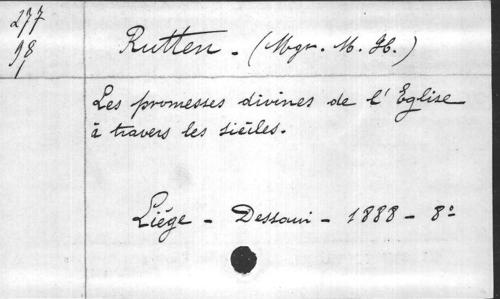 277
98
Rutten. (Mgr. M. H.)
Les promesses divines de l'Eglise
à travers les siècles.
Liége - Dessain - 1888 - 8°